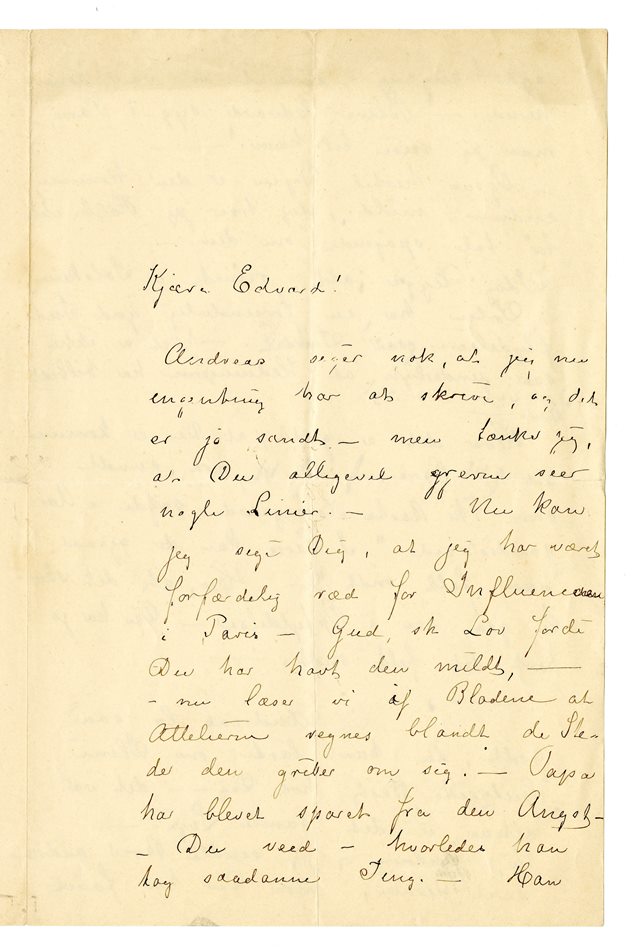 Kjære Edvard!
Andreas siger nok, at jeg nu
ingenting har at skrive, og det
er jo sandt – men tænker jeg,
at Du alligevel gjerne seer
nogle Linier. – Nu kan
jeg sige Dig, at jeg har været
forfærdelig ræd for Influenceaen
i Paris – Gud sk Lov fordi
Du har havt den mildt, –
– nu læser vi af Bladene at
Atteliererne regnes blandt de Ste-
der den griber om sig. – Papa
har blevet sparet fra den Angst –
– Du veed – hvorledes han
tog saadanne Ting. – Han